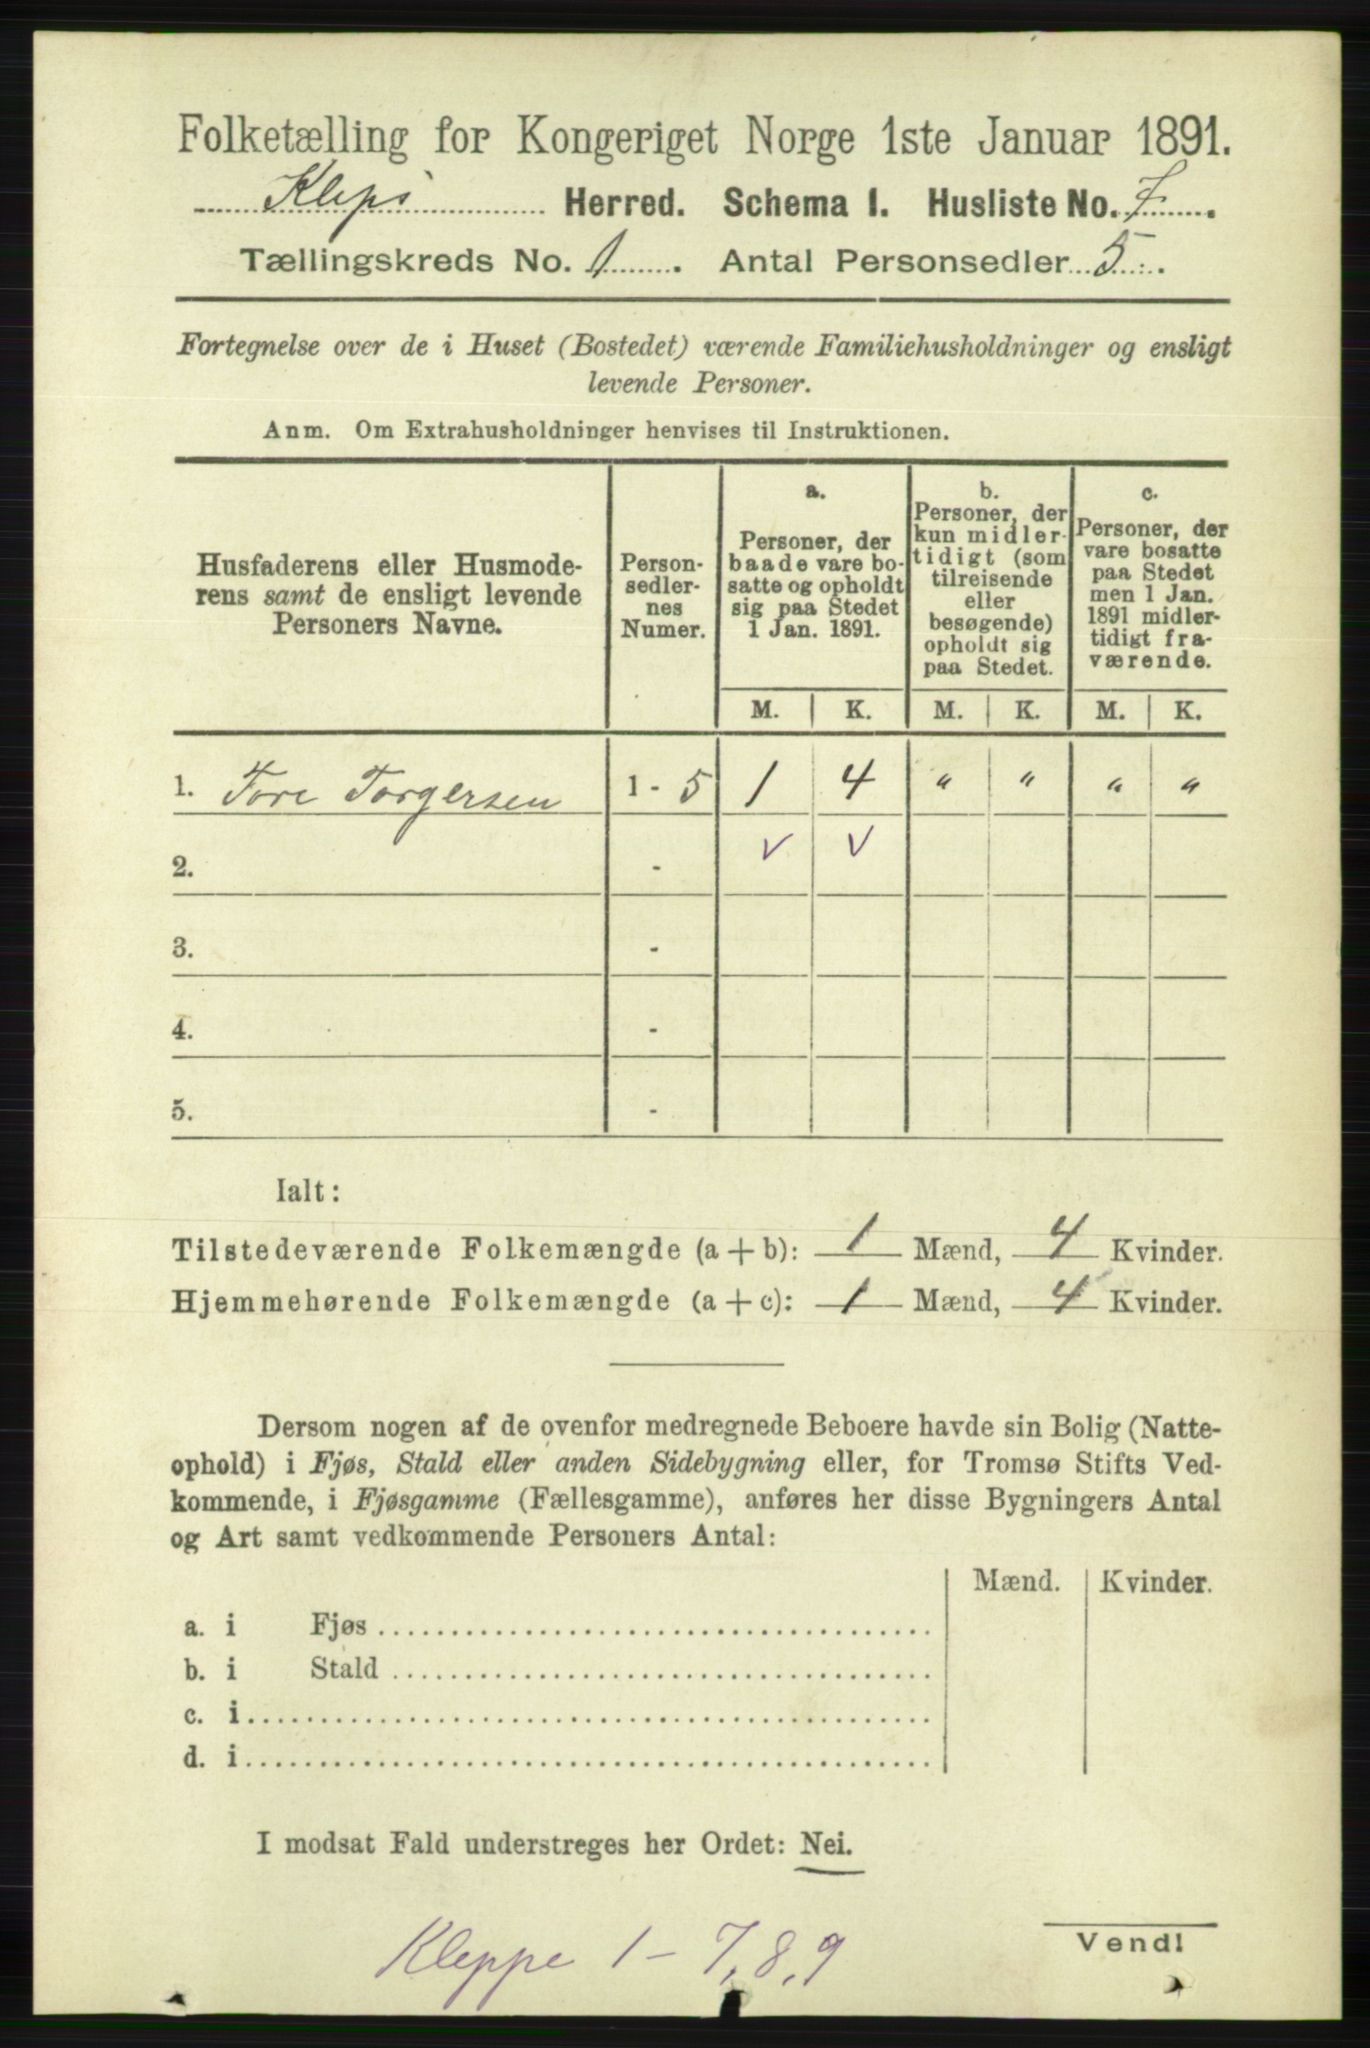 Folketælling for Kongeriget Norge 1ste Januar 1891.
Kleps Herred. Schema 1. Husliste No. 7.
Tællingskreds No. 1. Antal Personsedler 5.
Fortegnelse over de i Huset (Bostedet) værende Familiehusholdninger og ensligt
levende Personer.
Anm. Om Extrahusholdninger henvises til Instruktionen.
Husfaderens eller Husmode-
rens samt de ensligt levende
Personers Navne.
Person-
sedler-
nes
Numer.
a.
Personer, der
baade vare bo-
satte og opholdt
sig paa Stedet
1 Jan. 1891.
b.
Personer, der
kun midler-
tidigt (som
tilreisende
eller
besøgende)
opholdt sig
paa Stedet.
c.
Personer, der
vare bosatte
paa Stedet
men 1 Jan.
1891 midler-
tidigt fra-
værende.
M. K. M. K. M. K.
1. Tore Torgersen 1 - 5 1 4 " " " "
2. - v v
3. -
4. -
5. -
Ialt:
Tilstedeværende Folkemængde (a + b): 1 Mænd, 4 Kvinder.
Hjemmehørende Folkemængde (a + c): 1 Mænd, 4 Kvinder.
Dersom nogen af de ovenfor medregnede Beboere havde sin Bolig (Natte-
ophold) i Fjøs, Stald eller anden Sidebygning eller, for Tromsø Stifts Ved-
kommende, i Fjøsgamme (Fællesgamme), anføres her disse Bygningers Antal
og Art samt vedkommende Personers Antal:
Mænd. Kvinder.
a. i Fjøs
b. i Stald
c. i
d. i
I modsat Fald understreges her Ordet: Nei.
Vend!
Kleppe 1 - 7, 8, 9